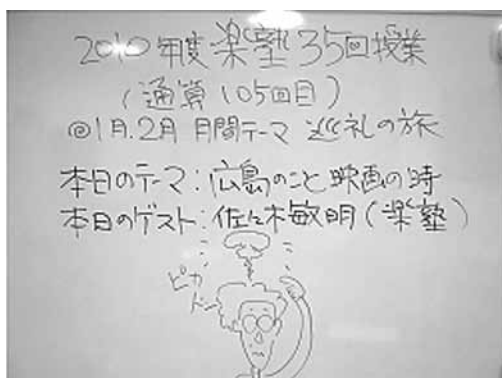 2010年度 楽塾 35回授業
(通算105回目)
@1月.2月 月間テーマ 巡礼の旅
本日のテーマ:広島のこと 映画の時
本日のゲスト:佐々木敏明(楽塾)
ピカ
ドーン